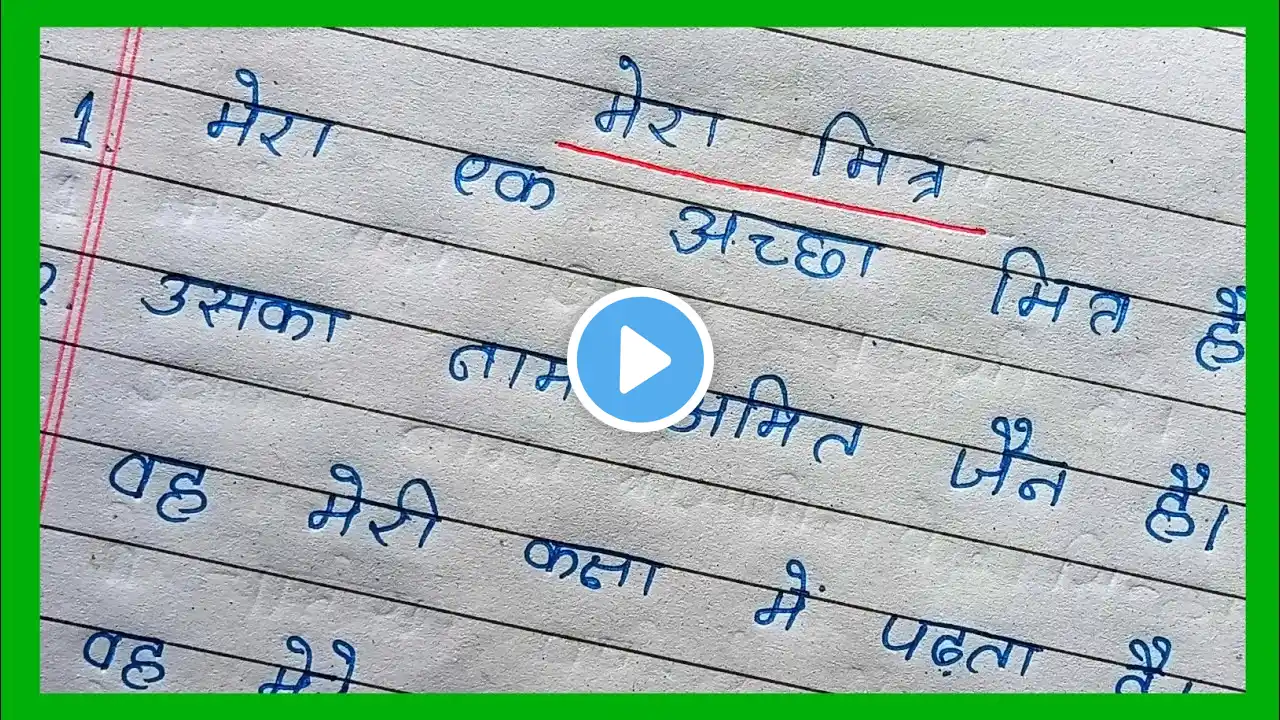 मेरा मित्र
1. मेरा एक अच्छा मित्र है
2. उसका नाम अमित जैन है।
वह मेरी कक्षा में पढ़ता है।
वह मेरे